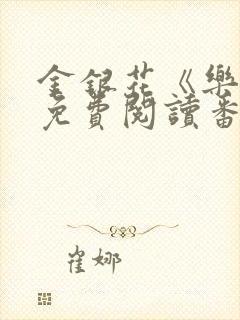 金銀花《樂
免費閱讀番
崔娜